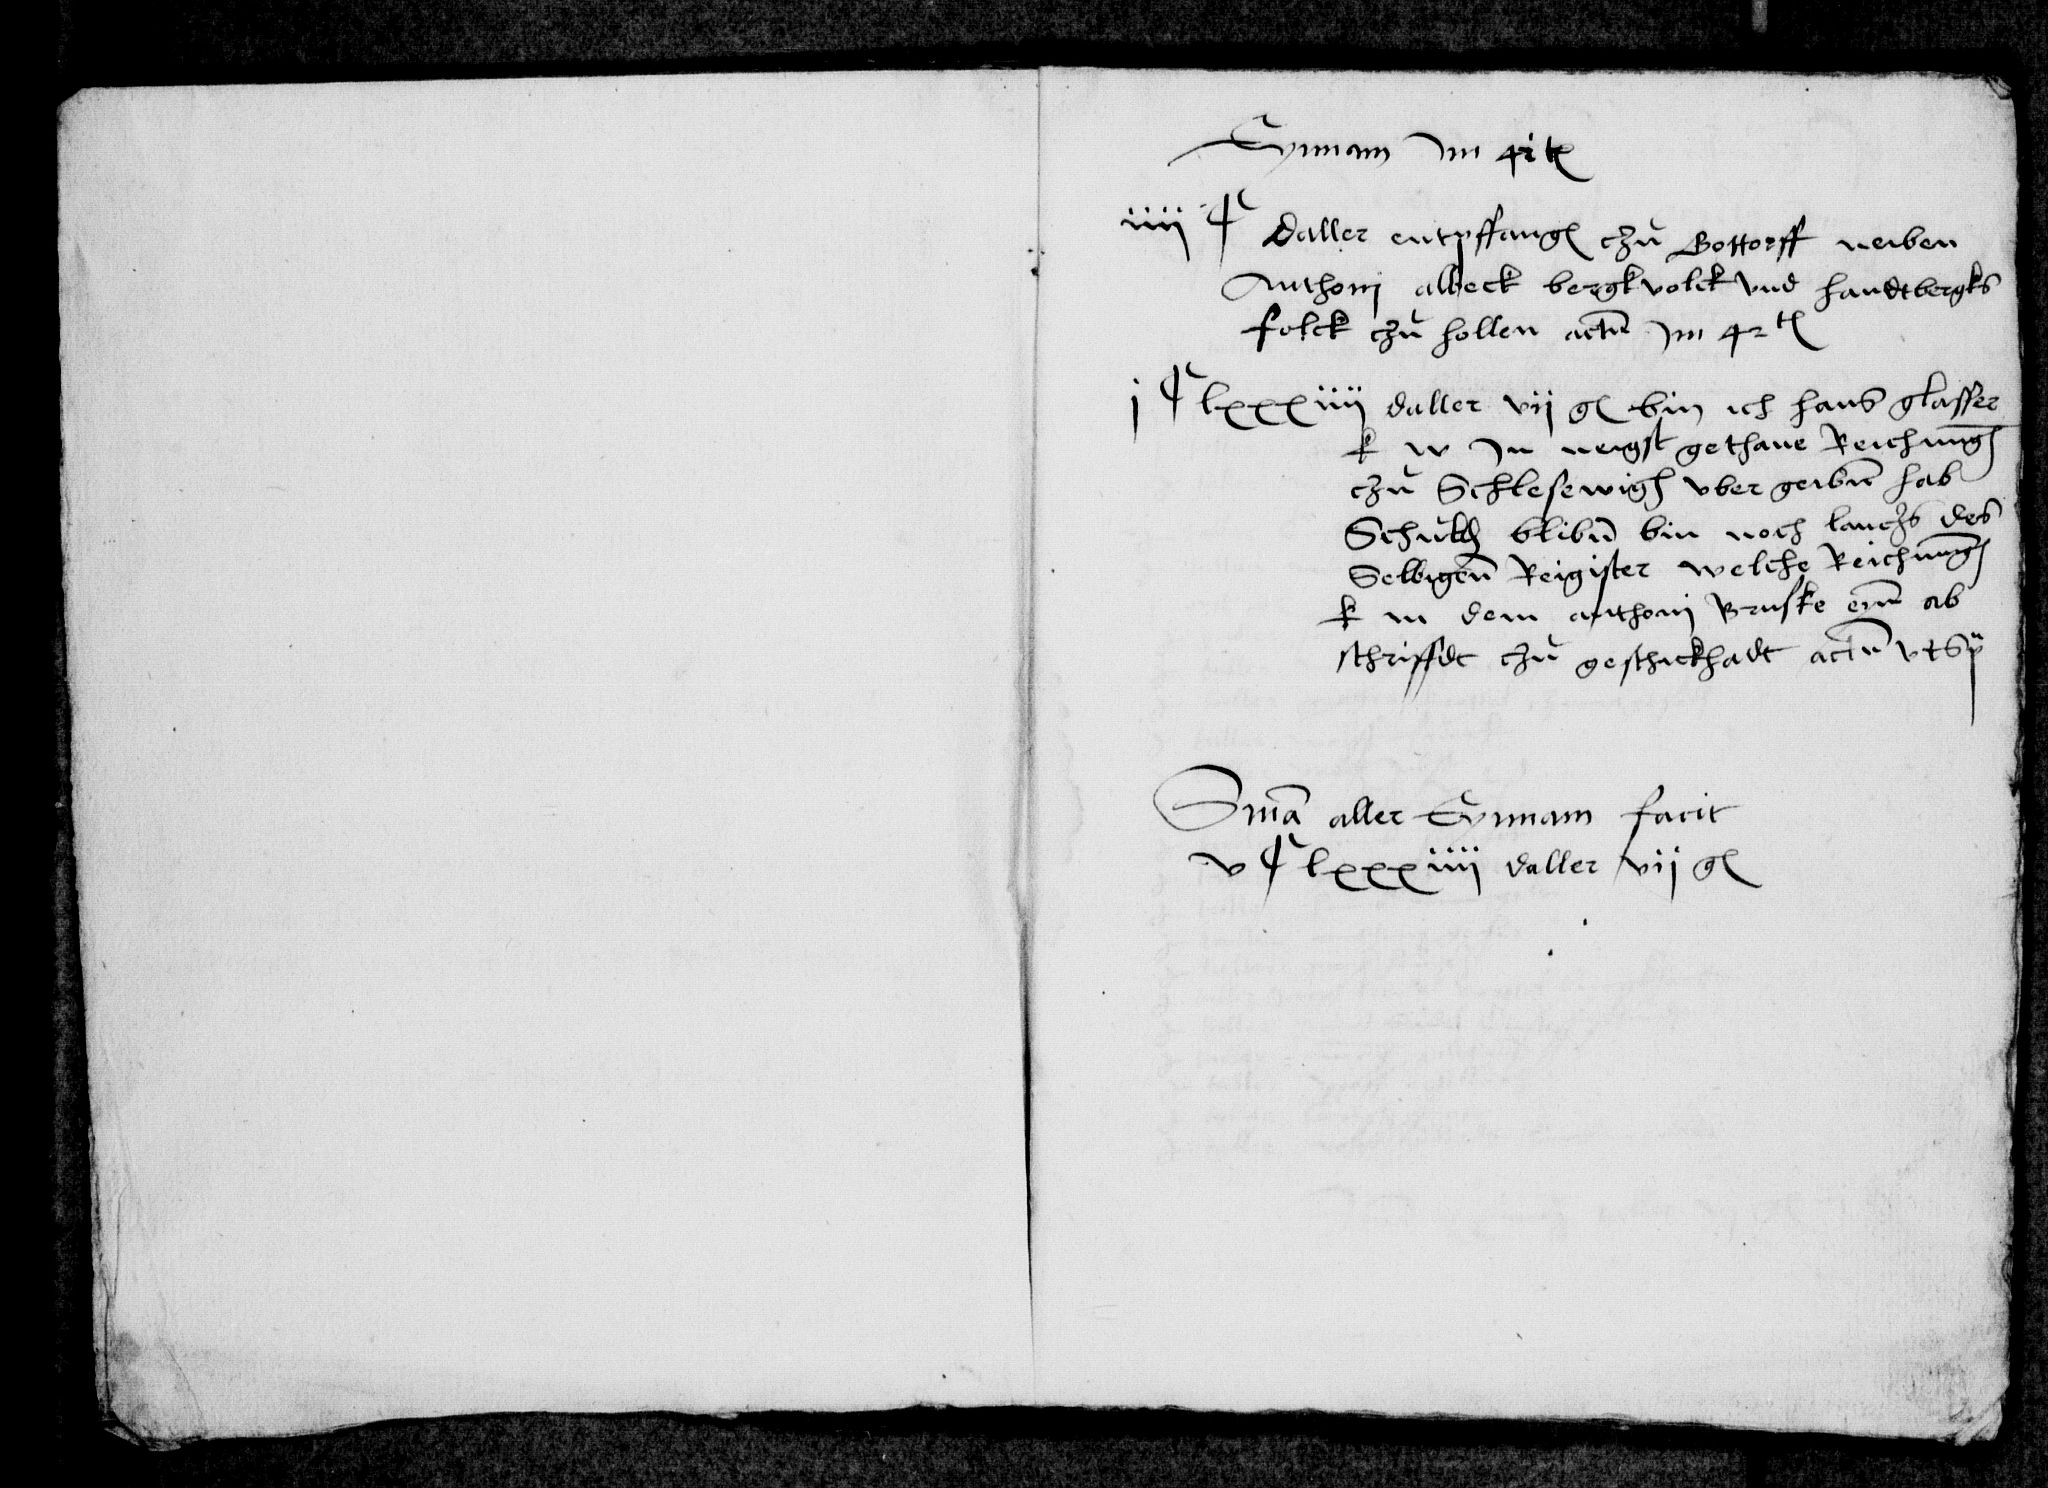 Eynnam Im 42te
iiij C daller entpffange czu Gottorff neiben
Anthonj albeck bergkvolck vnd handtbergks
folck czu hollen actu Im 42te
j C lxxxiiij daller vij g bin ich hans glasser
k w In neigst gethane Reichnung
czu Schlesewigh vber geibn hab
Schuldh blibn bin noch lauths des
Selbigenn Reigister welche Reichnung
k m dem anthonj Bruske eyn ab
schriffdt czu geschickhadt actu vts
Sma aller Eynnam facit
v C lxxxiiij daller vij g